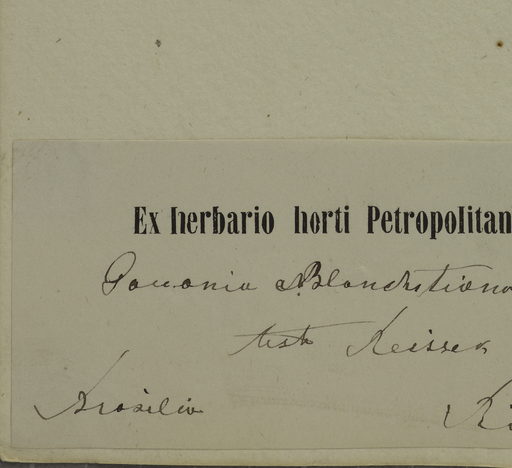 Ex herbario horti Petropolitan
Gouania Blanchetiana
test Reissek
Brasilia Ri